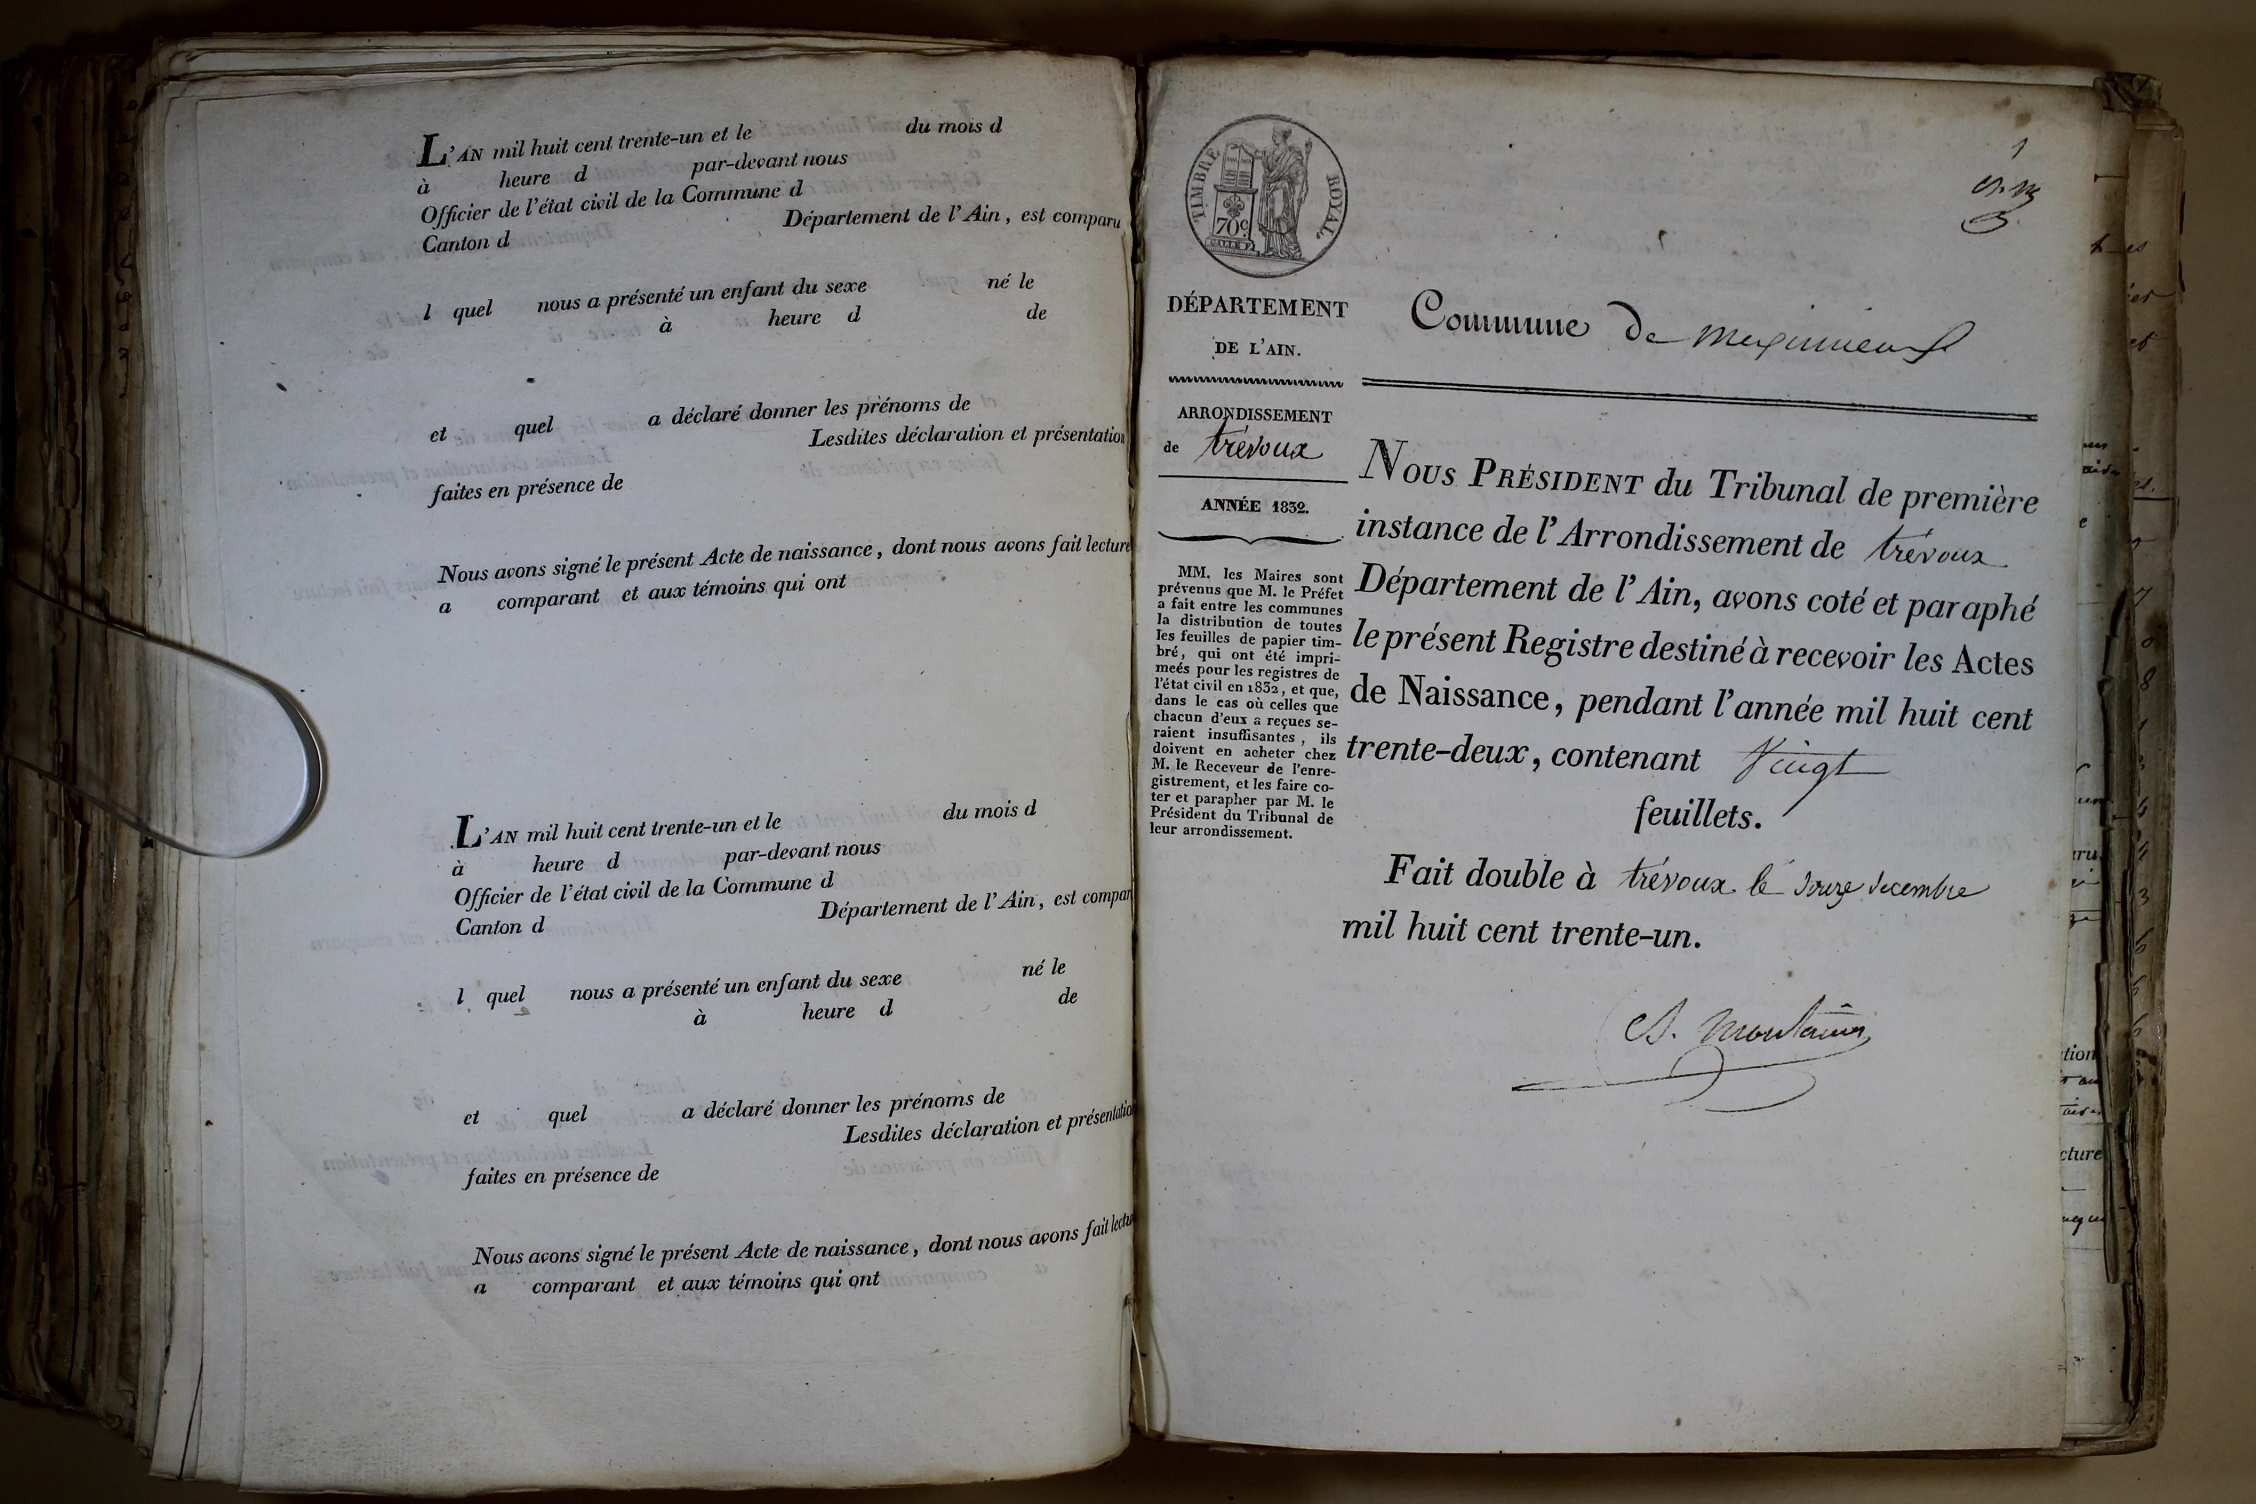 L'AN mil huit cent trente-un et le du mois d
à heure d par-devant nous
Officier de l'état civil de la Commune d
Canton d Département de l'Ain, est comparu
l quel nous a présenté un enfant du sexe né le
à heure d de
et quel a déclaré donner les prénoms de
Lesdites déclaration et présentation
faites en présence de
Nous avons signé le présent Acte de naissance, dont nous avons fait lecture
a comparant et aux témoins qui ont
L'AN mil huit cent trente-un et le du mois d
à heure d par-devant nous
Officier de l'état civil de la Commune d
Canton d Département de l'Ain, est compar
l quel nous a présenté un enfant du sexe né le
à heure d de
et quel a déclaré donner les prénoms de
Lesdites déclaration et présentatio
faites en présence de
Nous avons signé le présent Acte de naissance, dont nous avons fait lectu
a comparant et aux témoins qui ont
1
TIMBRE ROYAL.
70c
DÉPARTEMENT
DE L'AIN.
ARRONDISSEMENT
de trévoux
ANNÉE 1832.
MM. les Maires sont
prévenus que M. le Préfet
a fait entre les communes
la distribution de toutes
les feuilles de papier tim-
bré, qui ont été impri-
meés pour les registres de
l'état civil en 1832, et que,
dans le cas où celles que
chacun d'eux a reçues se-
raient insuffisantes, ils
doivent en acheter chez
M. le Receveur de l'enre-
gistrement, et les faire co-
ter et parapher par M. le
Président du Tribunal de
leur arrondissement.
Commune de meximieux
NOUS PRÉSIDENT du Tribunal de première
instance de l'Arrondissement de trévoux
Département de l'Ain, avons coté et paraphé
le présent Registre destiné à recevoir les Actes
de Naissance, pendant l'année mil huit cent
trente-deux, contenant Vingt
feuillets.
Fait double à trévoux le douze decembre
mil huit cent trente-un.